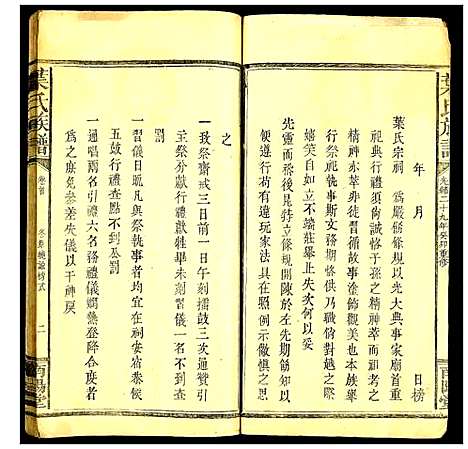 葉氏族譜
光緒二十九年癸卯重修
南陽堂
年 月 日榜
葉氏宗祠 為嚴飭條規以光大典事家廟首重
祀典行禮須尚誠恪子孫之精神而祖考之
神永萃非徒習儀節故事塗飾觀美也本族舉
行祭祀執事斯文務期恪恭乃職倘對越之際
嬉笑自如立不端莊舉止失次何以妥
先靈而裕後昆特立條規開陳於左先期飭知
以杜臨事違玩家法具在照例示儆慎之思
之
一致祭齋戒三日前一日午刻擂鼓三次通贊引
主祭分獻行禮獻牲畢未刻習儀一名不到查
罰
一習儀日畝凡與祭執事者均宜在祠安宿恭候
五鼓行禮查點不到呈罰
一通唱兩名引禮六名務禮儀嫻熟登降合度者
為之庶免參差失儀以干神戾
葉氏族譜
卷首
二
南陽堂